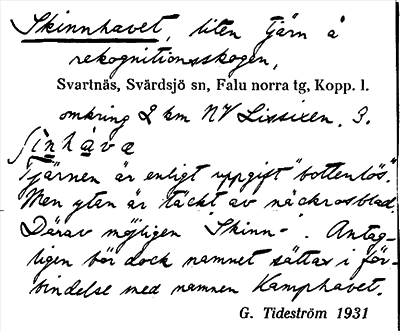 Skinnhavet, liten tjärn å
rekognitionsskogen,
Svartnäs, Svärdsjö sn, Falu norra tg, Kopp. l.
omkring 2 km NV Lissixen. 3.
Tjärnen är enligt uppgift "bottenlös".
Men ytan är täckt av näckrosblad.
Därav möjligen "Skinn-". Antag-
ligen bör dock namnet sättas i för-
bindelse med namnen Kamphavet.
G. Tideström 1931